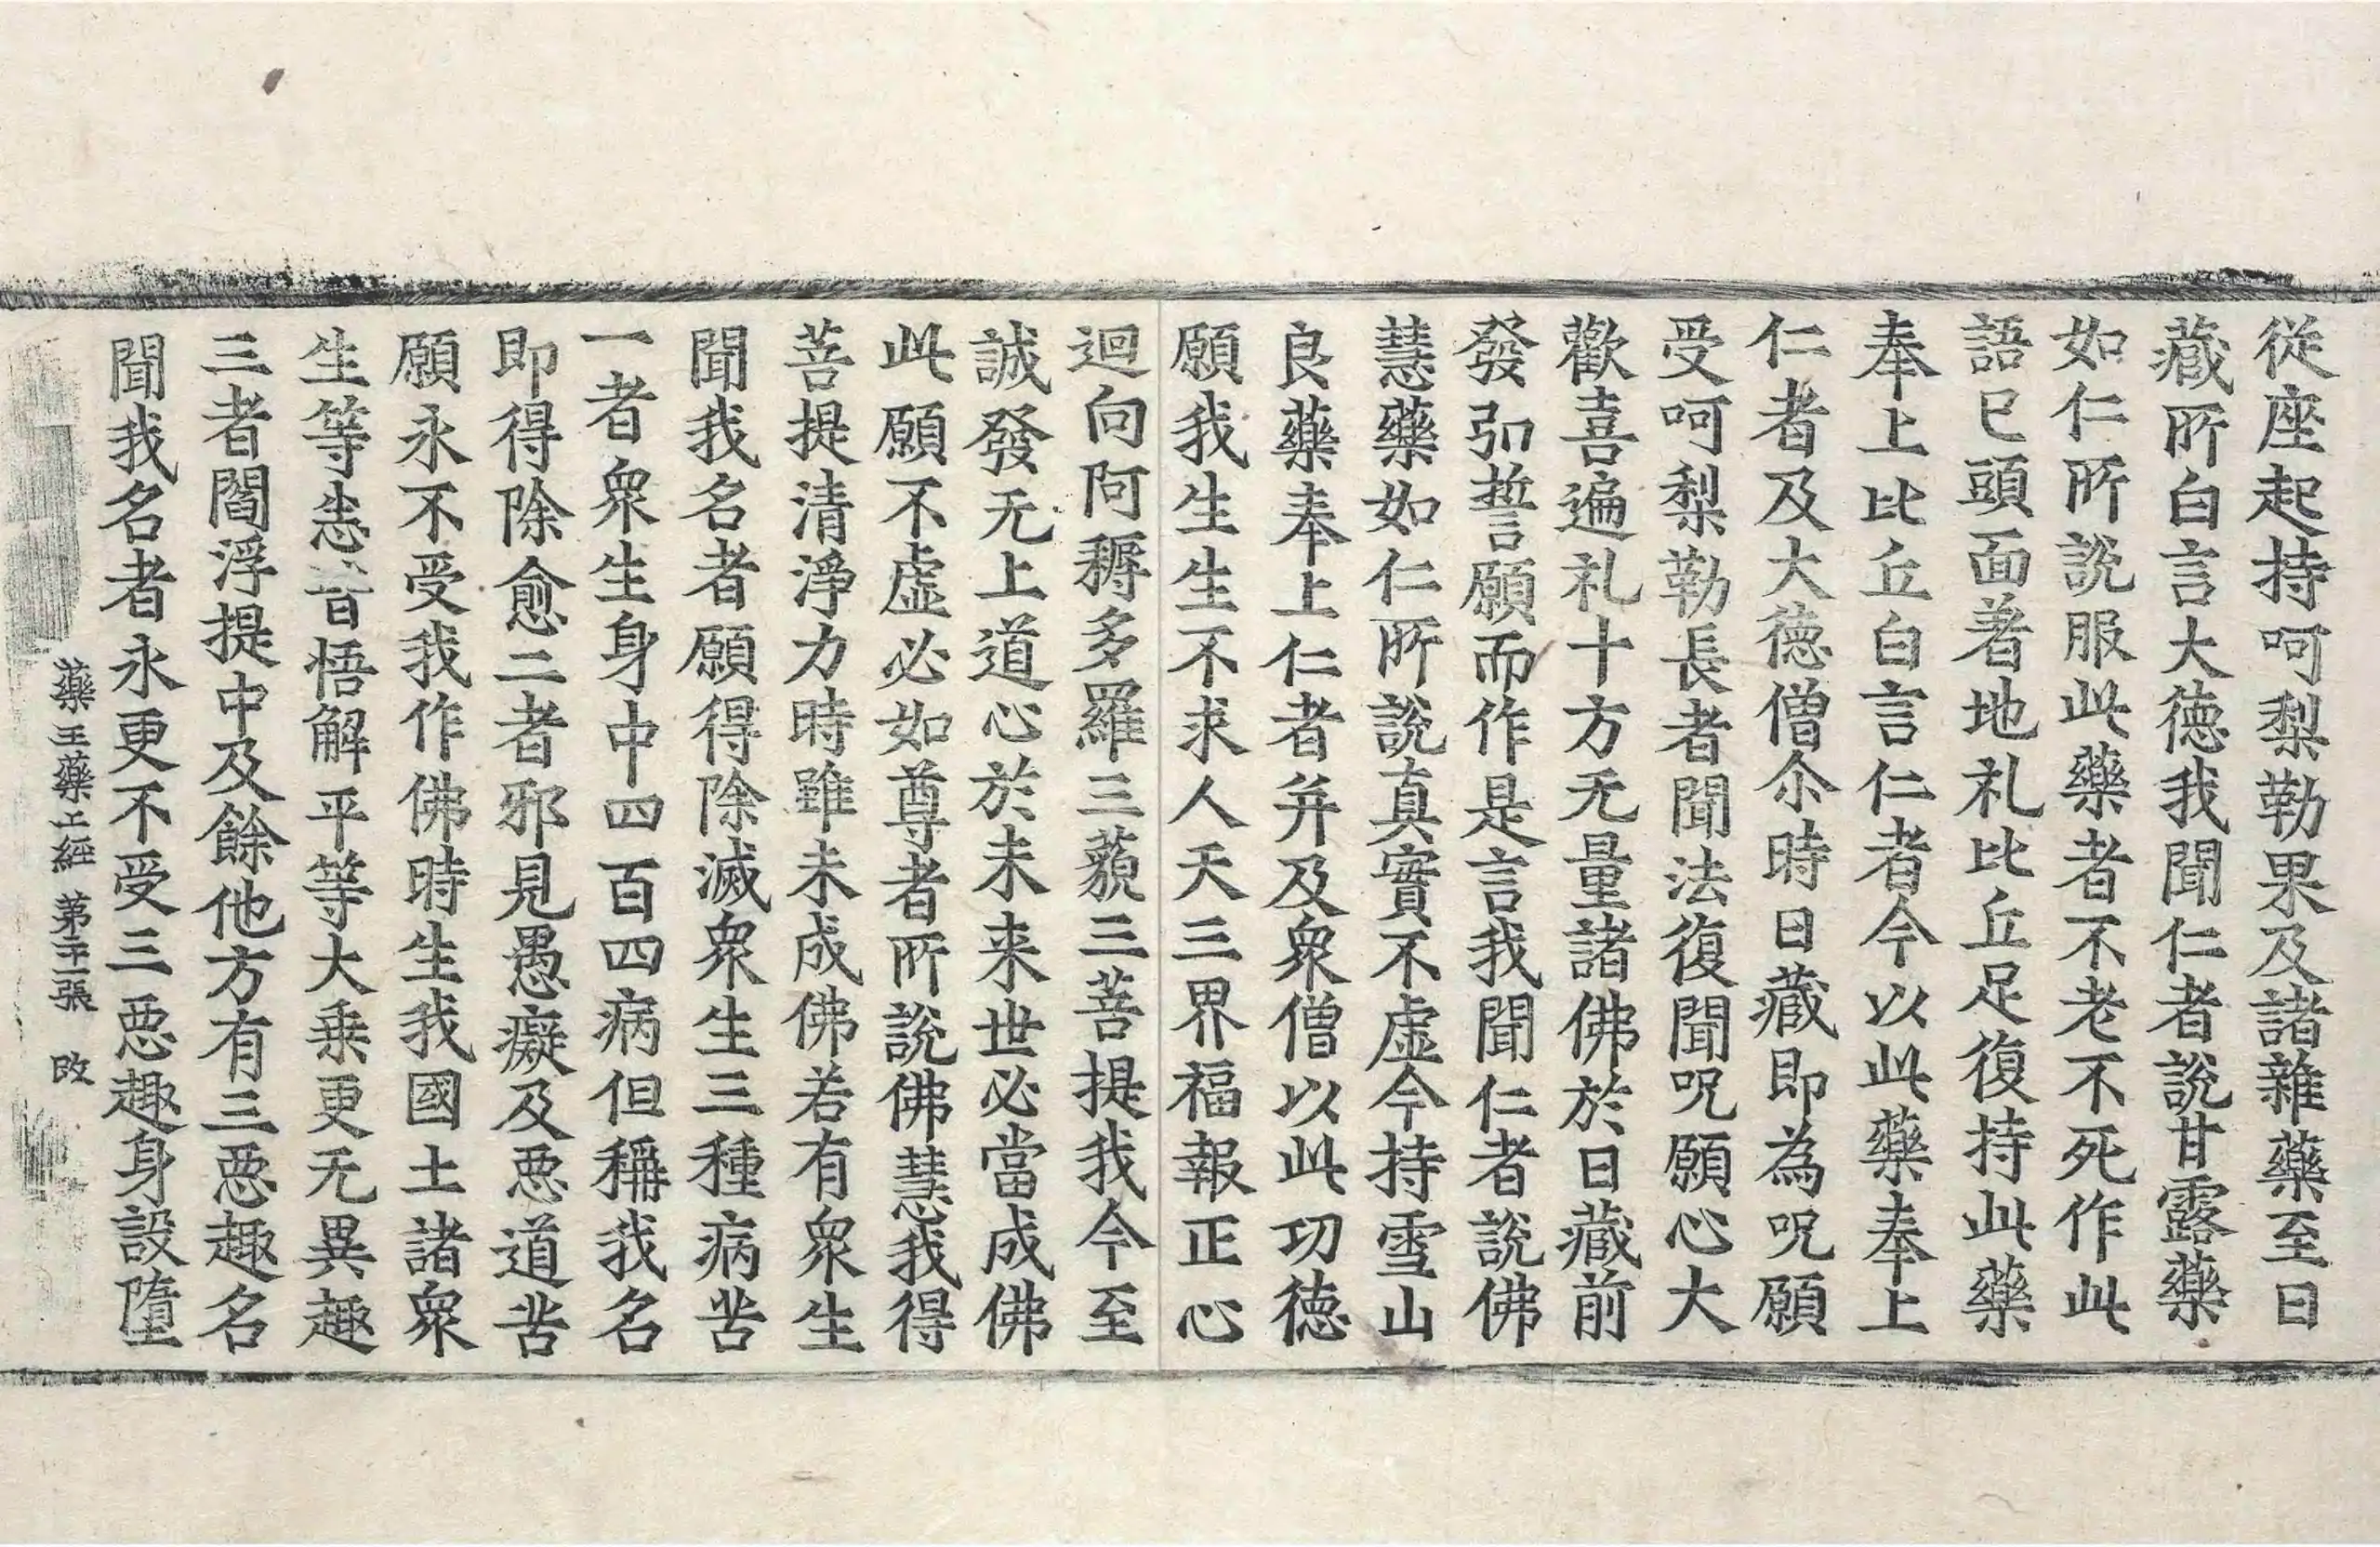 從座起持呵梨勒果及諸雜藥至日
藏所白言大徳我聞仁者說甘露藥
如仁所說服此藥者不老不死作此
語已頭面著地礼比丘足復持此藥
奉上比丘白言仁者今以此藥奉上
仁者及大徳僧尒時日藏即為呪願
受呵梨勒長者聞法復聞呪願心大
歡喜遍礼十方无量諸佛於日藏前
發弘誓願而作是言我聞仁者說佛
慧藥如仁所說真實不虛今持雪山
良藥奉上仁者并及衆僧以此功徳
願我生生不求人天三界福報正心
迴向阿耨多羅三藐三菩提我今至
誠發无上道心於未来世必當成佛
此願不虛必如尊者所說佛慧我得
菩提清淨力時雖未成佛若有衆生
聞我名者願得除滅衆生三種病苦
一者衆生身中四百四病但稱我名
即得除愈二者邪見愚癡及惡道苦
願永不受我作佛時生我國土諸衆
生等悉皆悟解平等大乗更无異趣
三者閻浮提中及餘他方有三惡趣名
聞我名者永更不受三惡趣身設墮
藥王藥上經 第二十一張